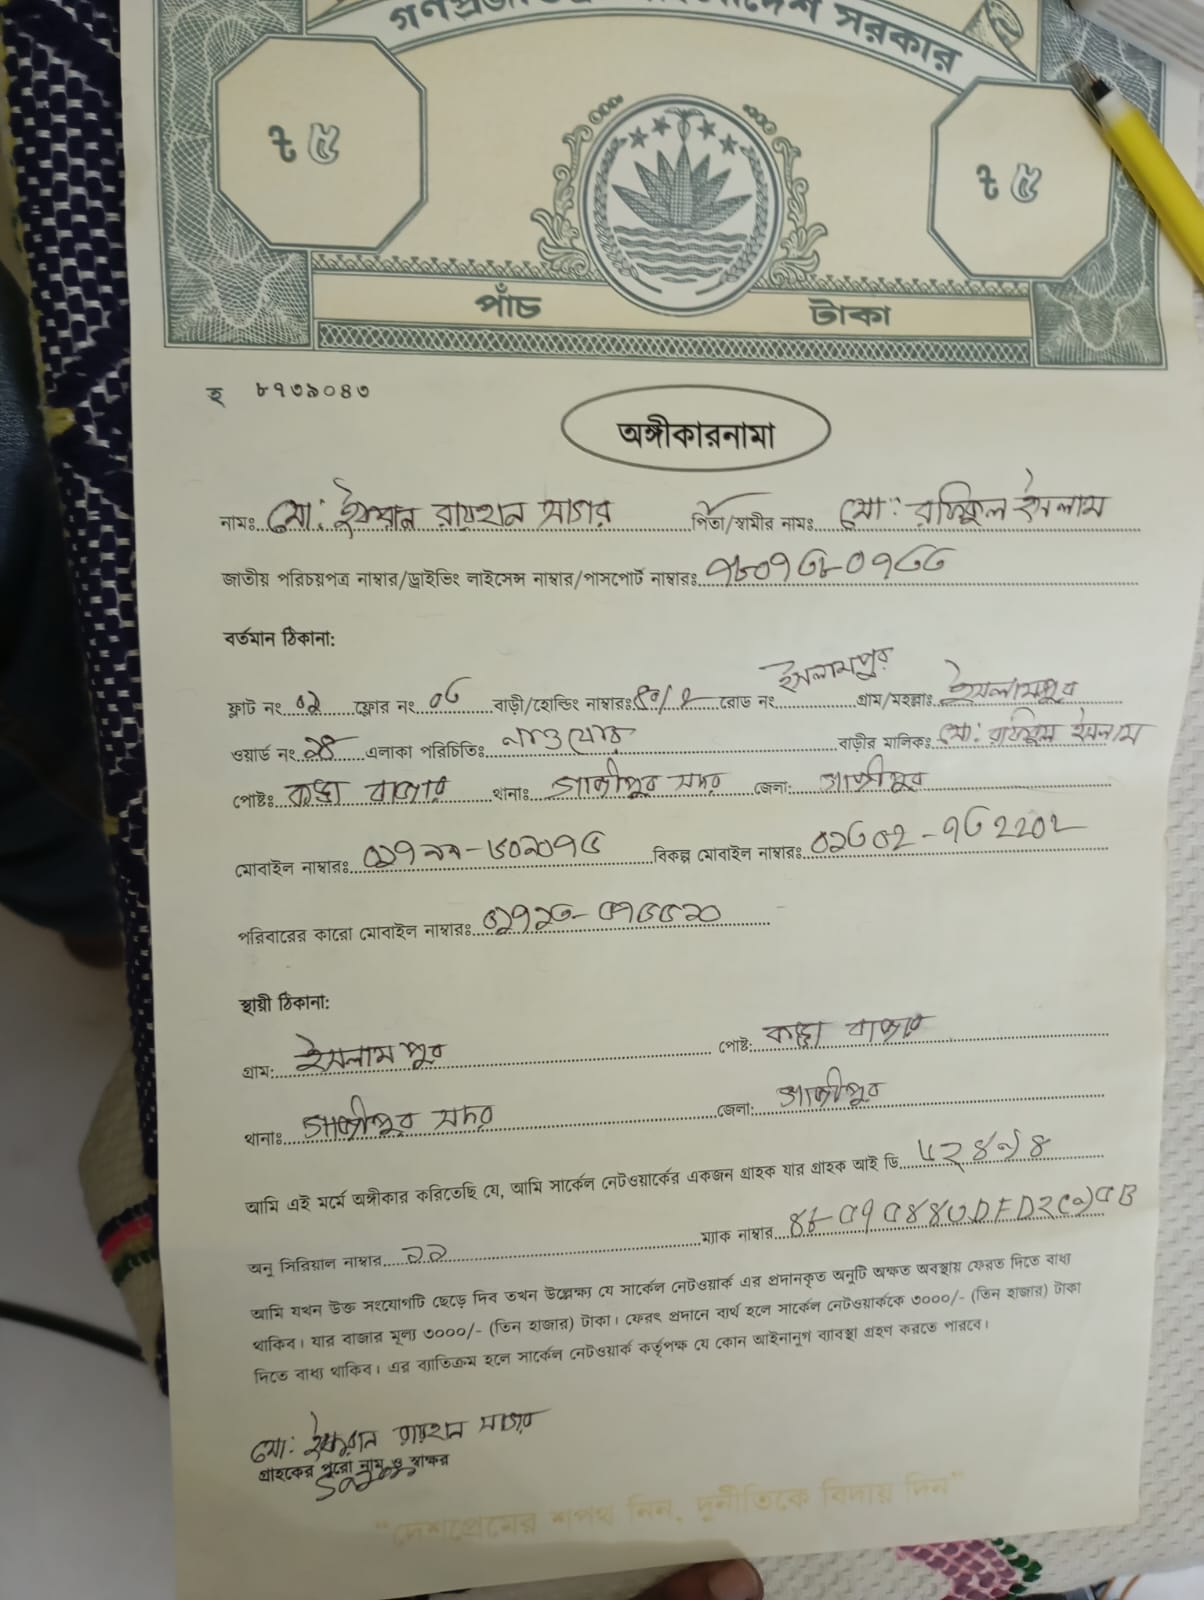 গণপ্রজাতন্ত্রী বাংলাদেশ সরকার
৳ ৫
৳ ৫
পাঁচ টাকা
হ ৮৭৩৯০৪৩
অঙ্গীকারনামা
নামঃ মো: ইমরান রায়হান সাগর পিতা/স্বামীর নামঃ মো: রফিকুল ইসলাম
জাতীয় পরিচয়পত্র নাম্বার/ড্রাইভিং লাইসেন্স নাম্বার/পাসপোর্ট নাম্বারঃ
বর্তমান ঠিকানা:
ইসলামপুর
ফ্লাট নং ০২ ফ্লোর নং ০৬ বাড়ী/হোল্ডিং নাম্বারঃ রোড নং গ্রাম/মহল্লাঃ ইসলামপুর
ওয়ার্ড নং এলাকা পরিচিতিঃ নাওযোড় বাড়ীর মালিকঃ মো: রফিকুল ইসলাম
পোষ্টঃ কড্ডা বাজার থানাঃ গাজীপুর সদর জেলা: গাজীপুর
মোবাইল নাম্বারঃ বিকল্প মোবাইল নাম্বারঃ
পরিবারের কারো মোবাইল নাম্বারঃ
স্থায়ী ঠিকানা:
গ্রাম: ইসলামপুর পোষ্ট: কড্ডা বাজার
থানাঃ গাজীপুর সদর জেলা: গাজীপুর
আমি এই মর্মে অঙ্গীকার করিতেছি যে, আমি সার্কেল নেটওয়ার্কের একজন গ্রাহক যার গ্রাহক আই ডি
অনু সিরিয়াল নাম্বার ম্যাক নাম্বার
আমি যখন উক্ত সংযোগটি ছেড়ে দিব তখন উল্লেক্ষ্য যে সার্কেল নেটওয়ার্ক এর প্রদানকৃত অনুটি অক্ষত অবস্থায় ফেরত দিতে বাধ্য
থাকিব। যার বাজার মূল্য ৩০০০/- (তিন হাজার) টাকা। ফেরৎ প্রদানে ব্যর্থ হলে সার্কেল নেটওয়ার্ককে ৩০০০/- (তিন হাজার) টাকা
দিতে বাধ্য থাকিব। এর ব্যতিক্রম হলে সার্কেল নেটওয়ার্ক কর্তৃপক্ষ যে কোন আইনানুগ ব্যবস্থা গ্রহণ করতে পারবে।
মো: ইমরান রায়হান সাগর
গ্রাহকের পুরো নাম ও স্বাক্ষর
"দেশপ্রেমের শপথ নিন, দুর্নীতিকে বিদায় দিন"